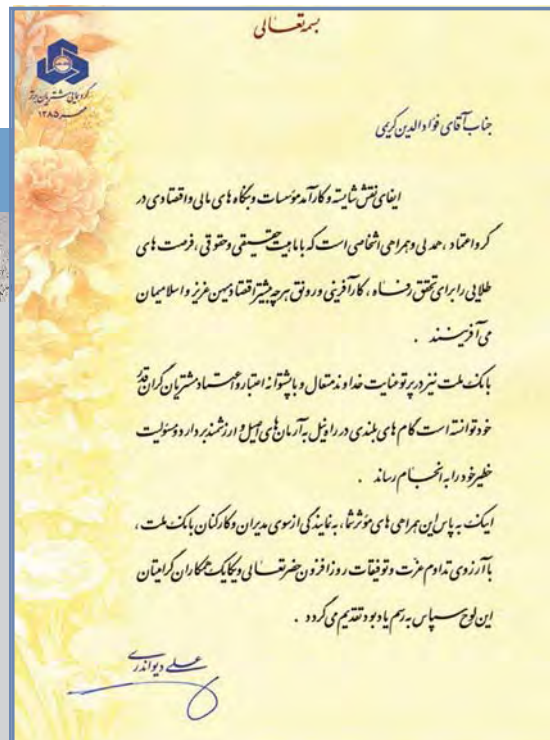 بسمه تعالی
گردهمایی مشتریان برتر
مهر ۱۳۸۵
جناب آقای فؤادالدین کریمی
ایفای نقش شایسته و کارآمد مؤسسات و بنگاه های مالی و اقتصادی در
گرو اعتماد ، همدلی و همراهی اشخاصی است که با ماهیت حقیقی و حقوقی ، فرصت های
طلایی را برای تحقق رفاه ، کارآفرینی و رونق هر چه بیشتر اقتصاد میهن عزیز و اسلامیمان
می آفرینند .
بانک ملت نیز در پرتو عنایت خداوند متعال و با پشتوانه اعتبار و اعتماد مشتریان گران قدر
خود توانسته است گام های بلندی در راه نیل به آرمان های اصیل و ارزشمند بردارد و مسئولیت
خطیر خود را به انجام رساند .
اینک به پاس این همراهی های مؤثر شما ، به نمایندگی از سوی مدیران و کارکنان بانک ملت ،
با آرزوی تداوم عزت و توفیقات روزافزون حضرتعالی و یکایک همکاران گرامیتان
این لوح سپاس به رسم یادبود تقدیم می گردد .
علی دیواندری